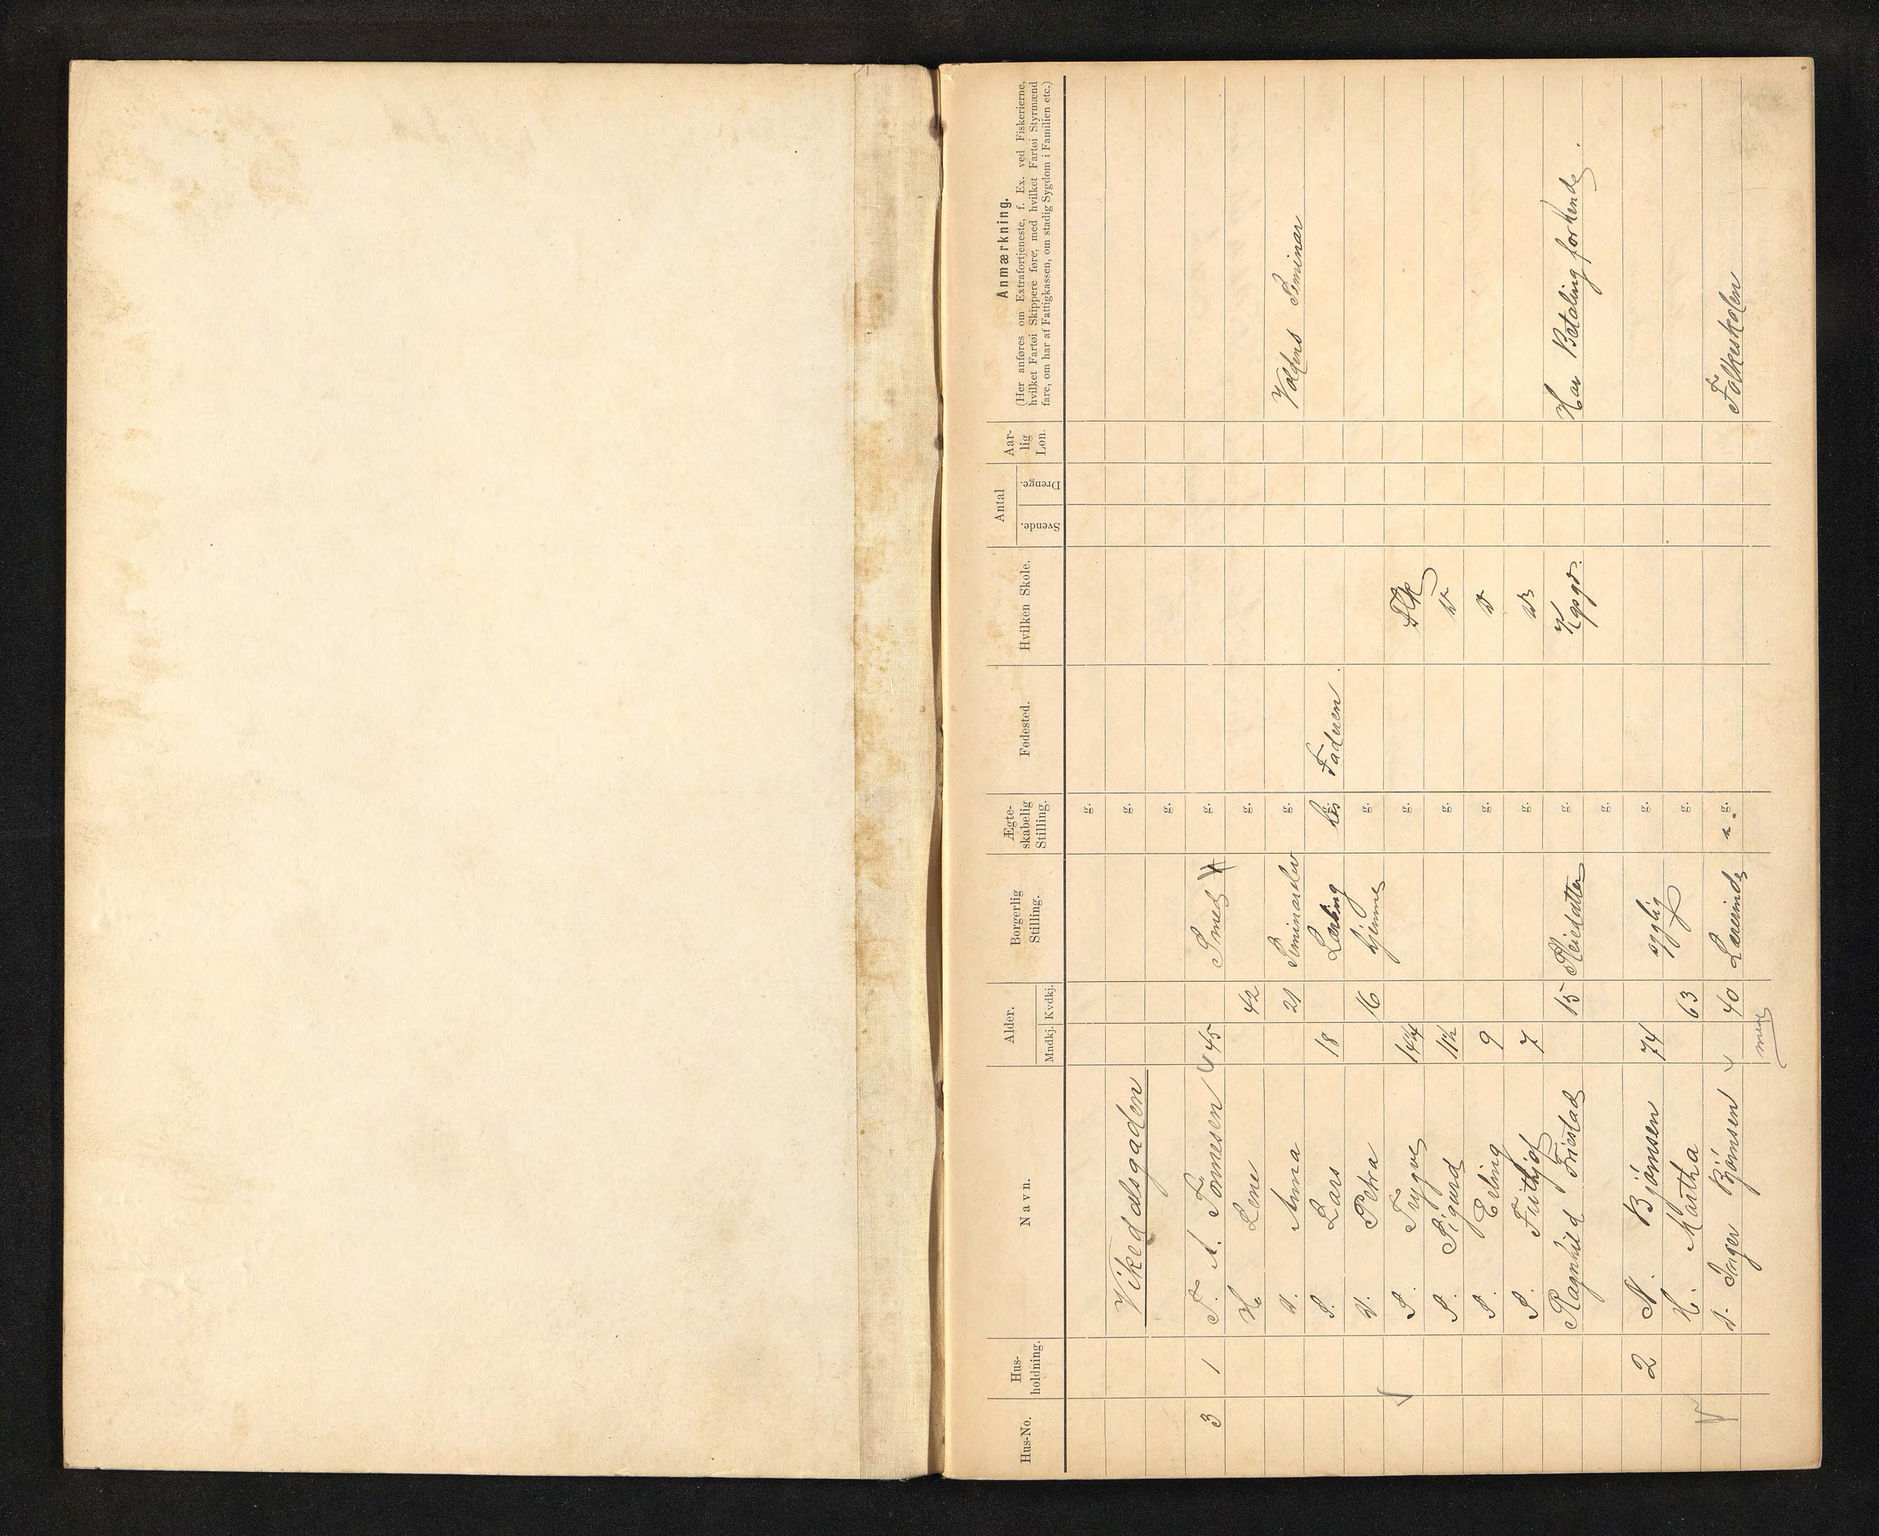 Hus-No. Hus-holdning. Navn. Alder. Mndkj. Kvdkj. Borgerlig Stilling. Ægte-skabelig Stilling. Fødested. Hvilken Skole. Antal Svende. Drenge. Aar-lig Løn. Anmærkning.
(Her anføres om Extrafortjeneste, f. Ex. ved Fiskerierne,
hvilket Fartøi Skippere føre, med hvilket Fartøi Styrmænd
fare, om har af Fattigkassen, om stadig Sygdom i Familien etc.)
g.
Vikedalsgaden g.
g.
3 1 T. A. Tomesen 45 Smed g.
H. Lene 42 g.
D. Anna 21 Seminarelev g. Volgens Seminar
S. Lars 18 Lærling g. Faderen
D. Petra 16 hjemme g.
S. Trygve 14 g.
S. Sigurd 11½ g.
S. Erling 9 g.
S. Frithjof 7 g.
Ragnhild Friestad 15 Pleiedatter g. Har Betaling for hende.
g.
2 N. Bjørnsen 74 sygelig g.
H. Martha 63 g.
D. Inger Bjørnsen 40 Lærerinde g. Folkeskolen